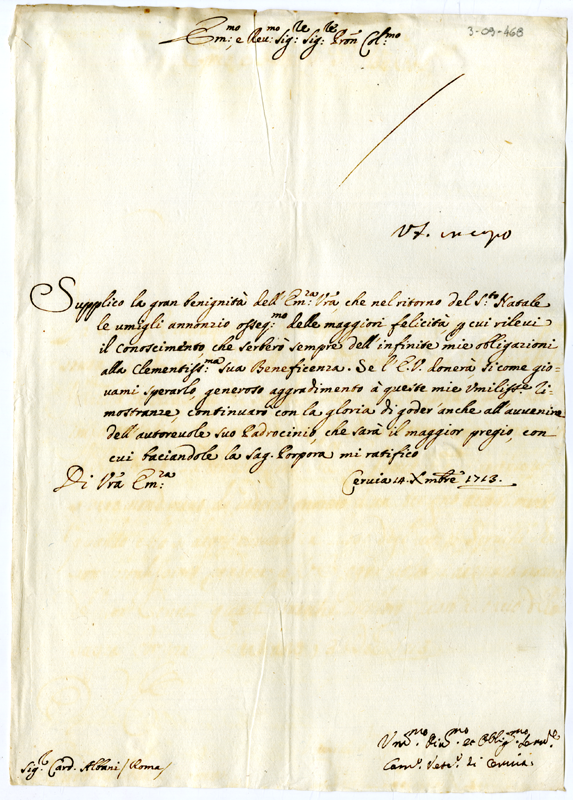 3-09-468
Em:mo e Reu:mo Sig:re Sig:re Pron Col:mo
Ut in capo
Supplico la gran benignità dell'Em:za Vra, che nel ritorno del S.to Natale
le umigli annonzio osseq:mo delle maggiori felicità p cui rilevi
il Conoscimento che serberò sempre dell'infinite mie obligazioni
alla Clementiss:ma Sua Beneficenza. Se l'E.V. donerà sì come gio-
vami sperarlo, generoso aggradimento à queste mie Umiliss:e Di-
mostranze, continuarò con la gloria di goder anche all'auuenire
dell'autoreuole suo Padrocinio, che sarà il maggior pregio, con
cui baciandole la Sag: Porpora mi ratifico
Di Vra Em:za
Ceruia 14. Xmbre 1713.
Um:mo Diu:mo et Obblig:mo Seru:e
Cam: Vesc:o di Ceruia
Sig:r Card. Albani / Roma /